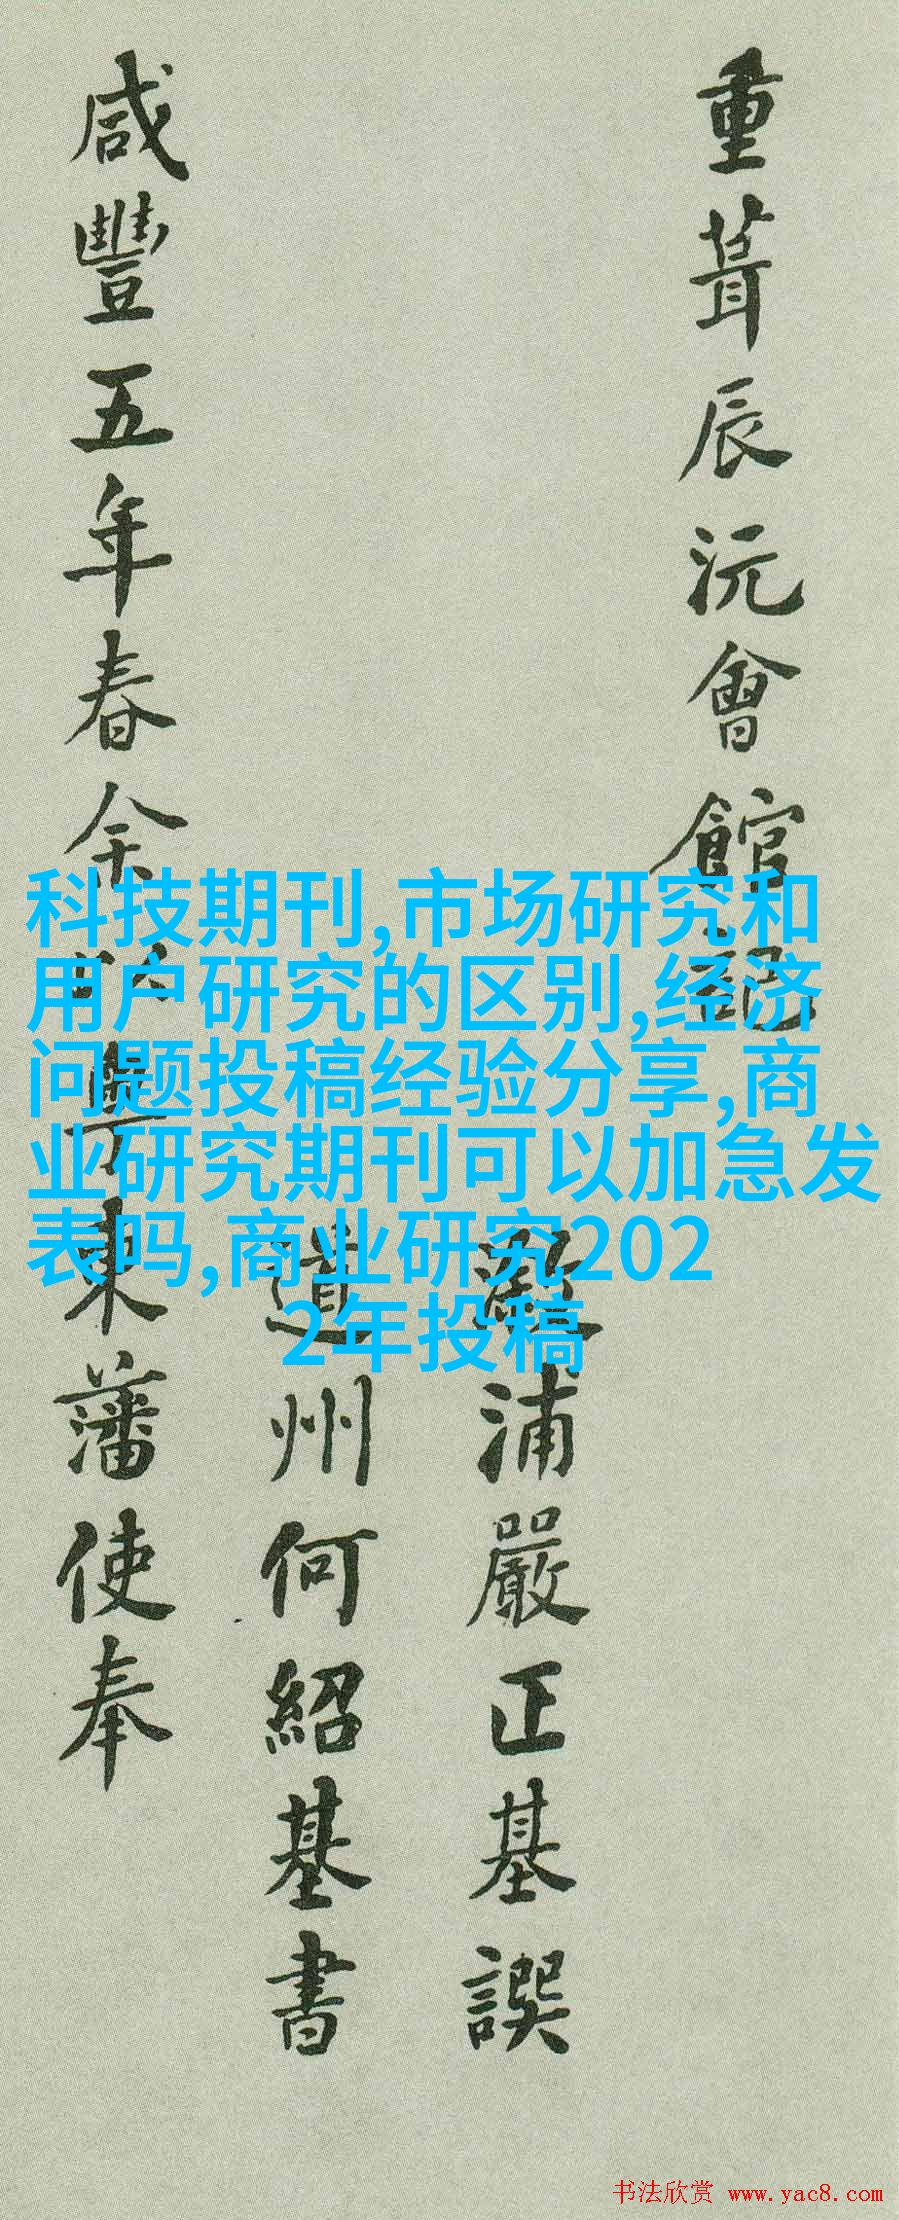 重葺辰沅會館記
浦嚴正基譔
道州何紹基書
咸豐五年春余以粵東藩使奉
科技期刊,市场研究和
用户研究的区别,经济
问题投稿经验分享,商
业研究期刊可以加急发
表吗,商业研究202
2年投稿
书法欣赏 www.yac8.com